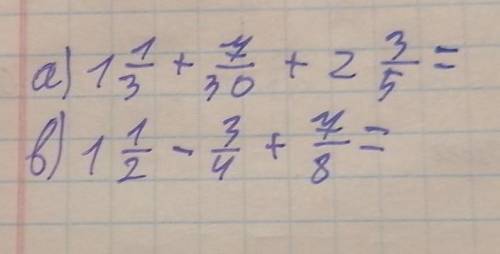 а) 1 1/3 + 7/30 + 2 3/5 =
в) 1 1/2 - 3/4 + 7/8 =